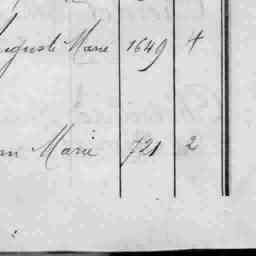 Auguste Marie 1649 4
Marie 721 2